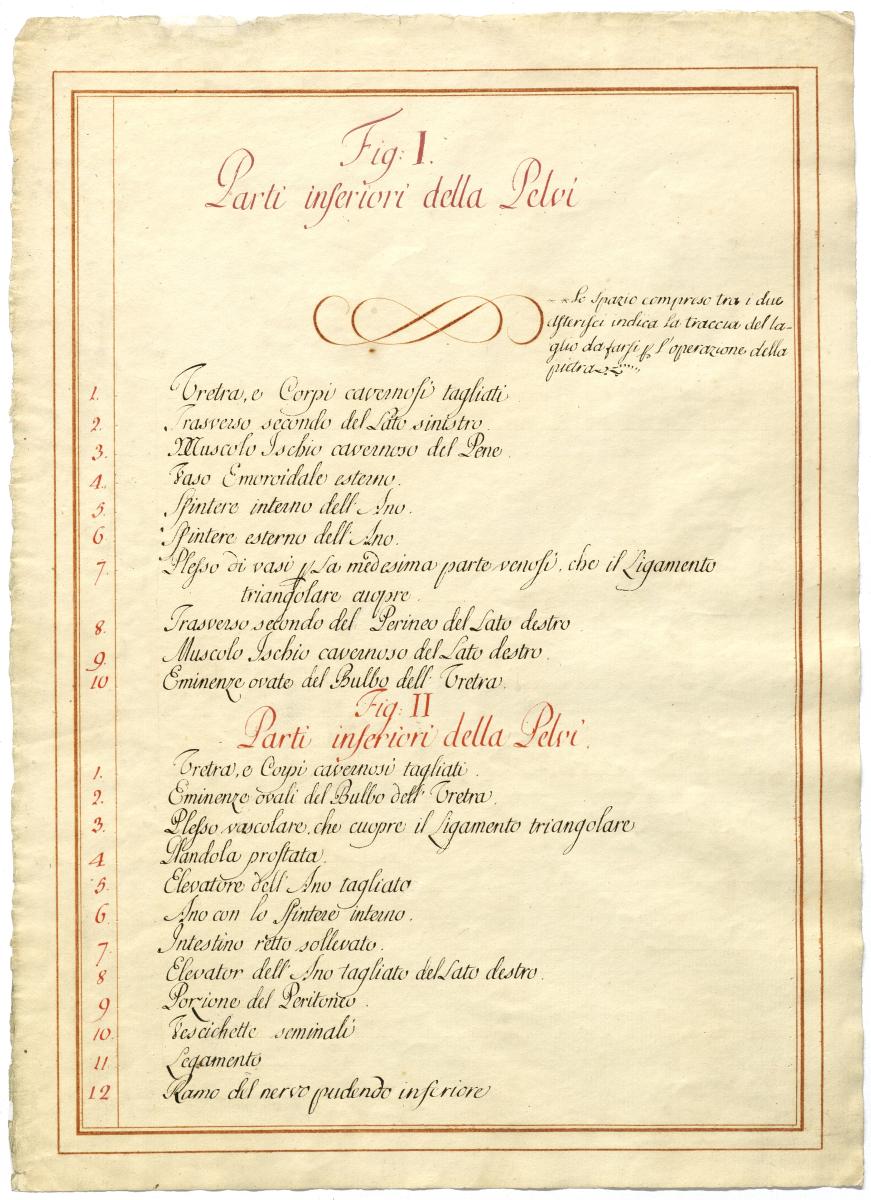 Fig: I.
Parti inferiori della Pelvi
**Lo spazio compreso tra i due
Asterisci indica la traccia del ta-
glio da farsi p l'operazione della
pietra
1. Vretra, e Corpi cavernosi tagliati
2. Trasverso secondo del Lato sinistro.
3. Muscolo Ischio cavernoso del Pene.
4. Vaso Emoroidale esterno.
5. Sfintere interno dell'Ano.
6. Sfintere esterno dell'Ano.
7. Plesso di vasi p La medesima parte venosi, che il Ligamento
triangolare cuopre.
8. Trasverso secondo del Perineo del Lato destro
9. Muscolo Ischio cavernoso del Lato destro.
10 Eminenze ovate del Bulbo dell'Vretra.
Fig: II
Parti inferiori della Pelvi.
1. Vretra, e Corpi cavernosi tagliati.
2. Eminenze ovali del Bulbo dell'Vretra.
3. Plesso vascolare, che cuopre il Ligamento triangolare
4. Glandola prostata.
5. Elevatore dell'Ano tagliato
6. Ano con lo Sfintere interno.
7. Intestino retto sollevato.
8 Elevator dell'Ano tagliato del Lato destro.
9 Porzione del Peritoneo.
10. Vescichette seminali
11 Legamento
12 Ramo del nervo pudendo inferiore